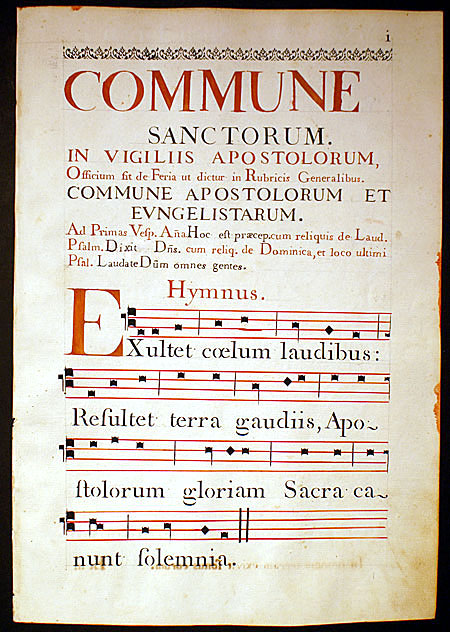 i
COMMUNE
SANCTORUM.
IN VIGILIIS APOSTOLORUM,
Officium fit de Feria ut dictur in Rubricis Generalibus.
COMMUNE APOSTOLORUM ET
EVNGELISTARUM.
Ad Primas Vesp. Aña Hoc est præcep. cum reliquis de Laud.
Psalm. Dixit Dñs. cum reliq. de Dominica, et loco ultimi
Psal. Laudate Dũm omnes gentes.
Hymnus.
EXultet cœlum laudibus:
Reſultet terra gaudiis, Apo~
ſtolorum gloriam Sacra ca~
nunt ſolemnia.